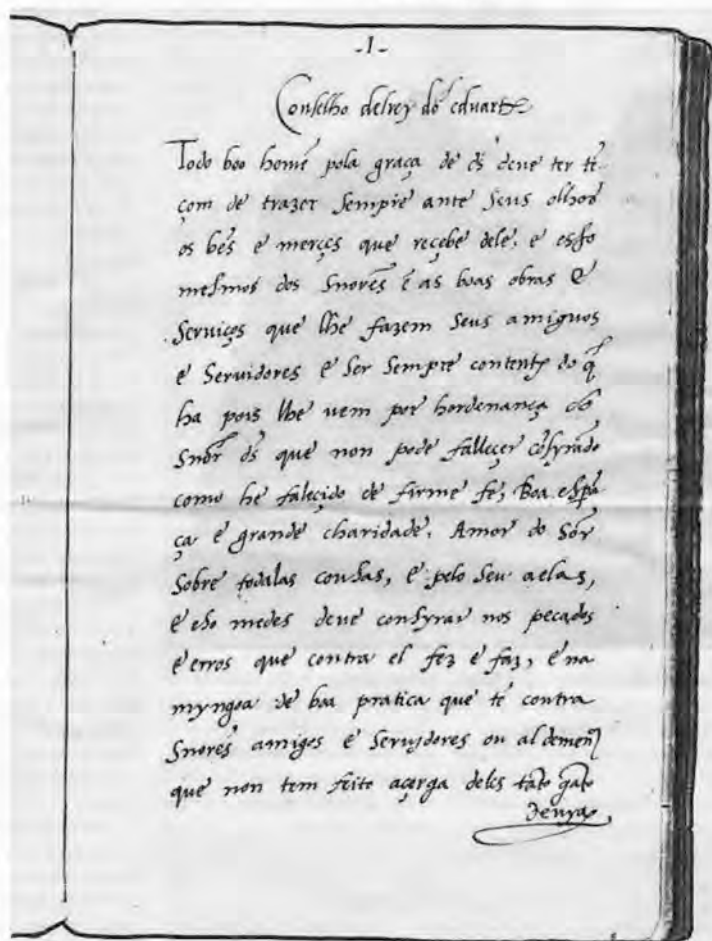 -1-
Conselho delrey dõ eduarte
Todo boo homẽ pola graça de ds deue ter tẽ-
çom de trazer sempre ante seus olhos
os beẽs e merçes que reçebe dele, e esso
mesmos dos Snorẽs e as boas obras e
seruiços que lhe fazem seus amiguos
e seruidores e ser sempre contente do q̃
ha pois lhe uem por hordenança do
Snõr ds que non pode falleçer cõsyrãdo
como he faleçido de firme fe, Boa espã
ça e grande charidade. Amor do Sõr
sobre todalas cousas, e pelo seu aelas,
e eso medes deue consyrar nos pecados
e erros que contra el fez e faz, e na
myngoa de boa pratica que tẽ contra
Snorẽs amigos e seruydores ou al demen
que non tem feito açerqa deles tãto q̃ãto
deuya